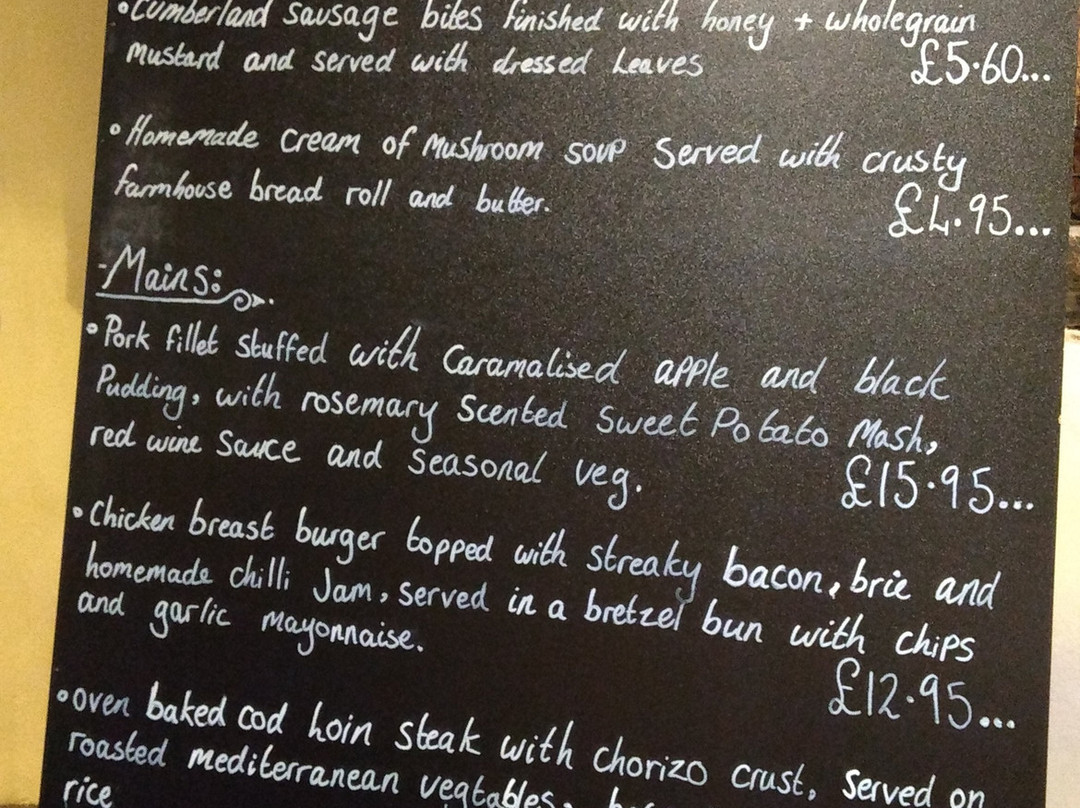 •Cumberland sausage bites finished with honey + wholegrain
mustard and served with dressed leaves £5.60...
•Homemade cream of mushroom soup served with crusty
farmhouse bread roll and butter. £4.95...
-Mains:
•Pork fillet stuffed with Caramalised apple and black
Pudding, with rosemary Scented Sweet Potato Mash,
red wine Sauce and seasonal veg. £15.95...
•Chicken breast burger topped with streaky bacon, brie and
homemade chilli Jam, served in a bretzel bun with chips
and garlic mayonnaise. £12.95...
•oven baked cod hoin steak with chorizo crust, served on
roasted mediterranean vegtables,
rice